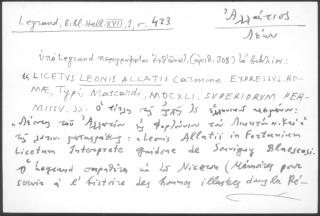 Legrand, Bibl. Hell. XVII, 1, σ. 423
Ἀλλάτιος
Λέων
ὑπὸ Legrand περιγράφεται (ἀριθ. 308) τὸ βιβλίον:
« LICETUS LEONIS ALLATII Carmine EXPRESSUS, RO-
MAE, Typis Mascardi, MDCXLI, SUPERIORUM PER-
MISSU. »: Ὁ τίτλος τῆς ᾠδῆς
« Λέοντος τοῦ Ἀλλατίου
τῆς μεταφράσεως: « Leonis Allatii in Fortunium
Licetum Interprete Guidone de Souvigny Blaesensi.
Ὁ Legrand ἐκ τοῦ Niceron (Mémoires pour
servir à l'histoire des hommes illustres dans la Ré-